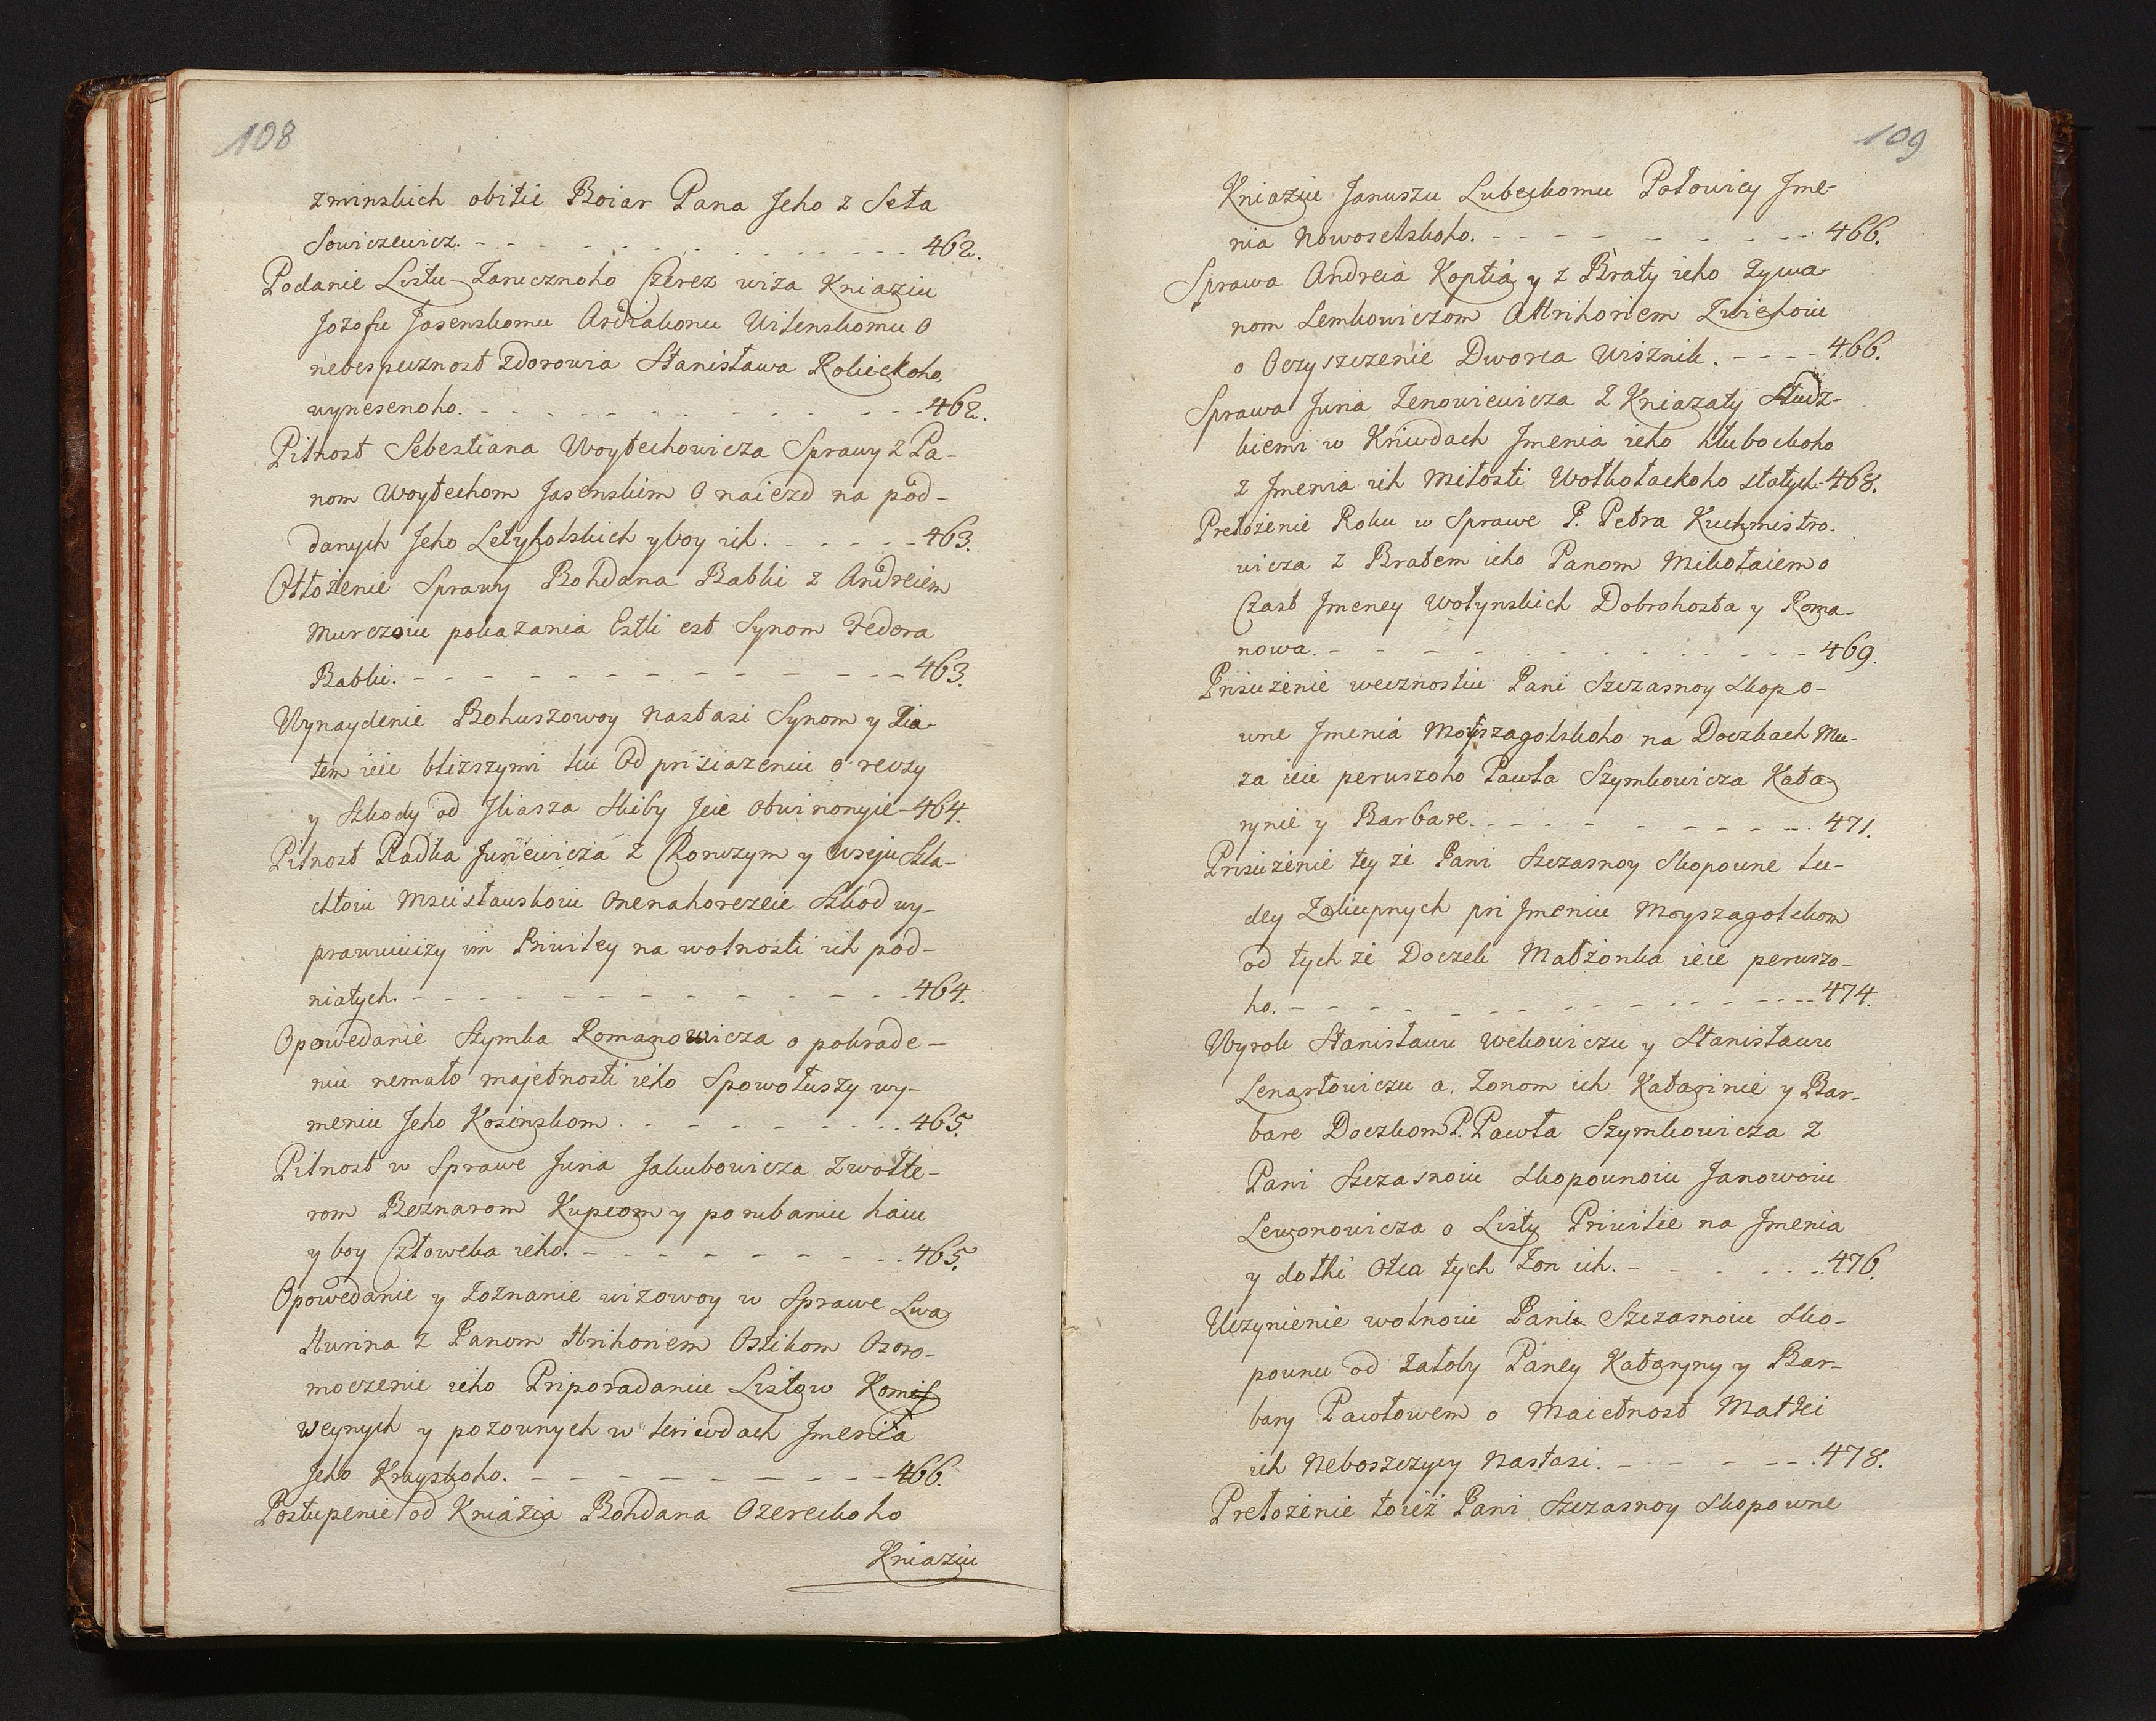 108
zminskich obitie Boiar Pana Jeho z Seła
Sowiczewicz. - - - - - - - - - - - 462.
Podanie Listu Zarucznoho Czerez wiża Kniaziu
Jozofu Jasenskomu Ardiakonu Wilenskomu O
nebespecznost zdorowia Stanisława Robieckoho
wynesenoho. - - - - - - - - - - - 462.
Pilnost Sebestiana Woytechowicza Sprawy z Pa-
nom Woytechom Jasenskim O naiezd na pod-
danych Jeho Letyholskich y boy ich. - - - - - 463.
Otłożenie Sprawy Bohdana Babki z Andreiem
Murczoiu pokazania Estli est Synom Fedora
Babki. - - - - - - - - - - - - 463.
Wynaydenie Bohuszowoy Nastasi Synom y Zia-
tem ieie bliższymi ku Od prisiażeniu o reczy
y Szkody od Iliasza Skiby Jeie Obwinonyie - 464.
Pilnost Radka Juriewicza z Chorużym y wseju Szla-
chtoiu Mscisławskoiu Onenahorożeie Szkod wy-
prawuiuczy im Priwiley na wolnosti ich pod-
niatych. - - - - - - - - - - - - - 464.
Opowedanie Szymka Romanowicza o pokrade-
niu nemało majetnosti ieho Spowołuszy wy-
meniu Jeho Kosinskom. - - - - - - - - 465.
Pilnost w Sprawe Juria Jakubowicza z wołte-
rom Beznarom Kupcom y porubaniu haiu
y boy Człoweka ieho. - - - - - - - - 465.
Opowedanie y zoznanie wizowoy w Sprawe Lwa
Hurina z Panom Hrihoriem Ostikom Osoro-
moczenie ieho Priporadaniu Listow Komis
weynych y pozownych w kriwdach Jmenia
Jeho Krayskoho. - - - - - - - - - 466.
Postupenie od Kniazia Bohdana Ozereckoho
Kniaziu
109
Kniaziu Januszu Lubeckomu Połowicy Jme-
nia Nowoselskoho. - - - - - - - - - 466.
Sprawa Andreia Koptia y z Braty ieho Zywa-
nom Lemkowiczom Hrihoriem Zwiehoiu
o Oczyszczenie Dworca Wisznik. - - - - 466.
Sprawa Juria Zenowiewicza z Kniazaty Słudz-
kiemi w Kriwdach Jmenia ieho Hłubockoho
z Jmenia ich Miłosti Wołkołackoho stałych - 468.
Prełożenie Roku w Sprawe P. Petra Kuchmistro-
wicza z Bratem ieho Panom Mikołaiem o
Czast Jmeney Wołynskich Dobrohosta y Roma-
nowa. - - - - - - - - - - - - 469.
Prisużenie wecznostiu Pani Szczasnoy Skopo-
wne Jmenia Moyszagolskoho na Doczkach Mu-
ża ieie perwszoho Pawła Szymkowicza Kata-
rynie y Barbare. - - - - - - - - - 471.
Prisużenie tey że Pani Szczasnoy Skopowne Lu-
dey Zakupnych pri Jmeniu Moyszagolskom
od tych że Doczek Małżonka ieie perwszo-
ho. - - - - - - - - - - - - - 474.
Wyrok Stanisławu Wekowiczu y Stanisławu
Lenartowiczu a. Zonom ich Katarinie y Bar-
bare Doczkom P. Pawła Szymkowicza z
Pani Szczasnoiu Skopownoiu Janowoiu
Lewonowicza o Listy Priwilie na Jmenia
y dołhi Otca tych Zon ich. - - - - - - 476.
Uczynienie wolnoiu Paniu Szczasnoiu Sko-
pownu od żałoby Paney Kataryny y Bar-
bary Pawłowem o Maietnost Matki
ich Neboszczycy Nastasi. - - - - - - 478.
Prełożenie toież Pani Szczasnoy Skopowne